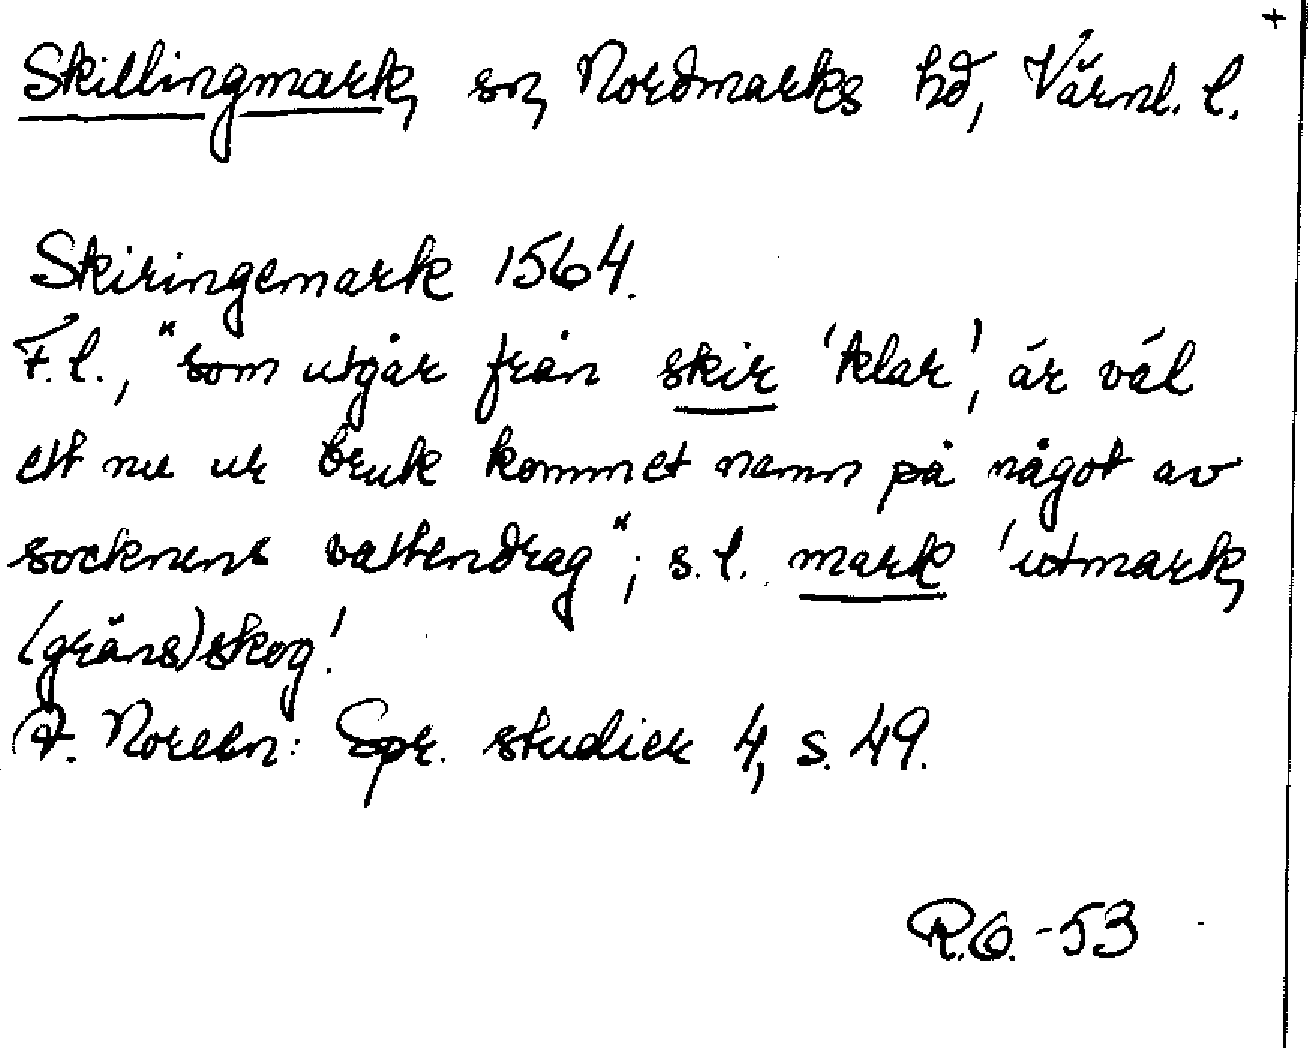 +
Skillingmark, sn, Nordmarks hd, Värml. l.
Skiringemark 1564.
F.l., "som utgår från skir 'klar', är väl
ett nu ur bruk kommet namn på något av
socknens vattendrag"; s.l. mark 'utmark,
(gräns)skog'.
A. Noreen: Spr. studier 4, s. 49.
R.O. -53